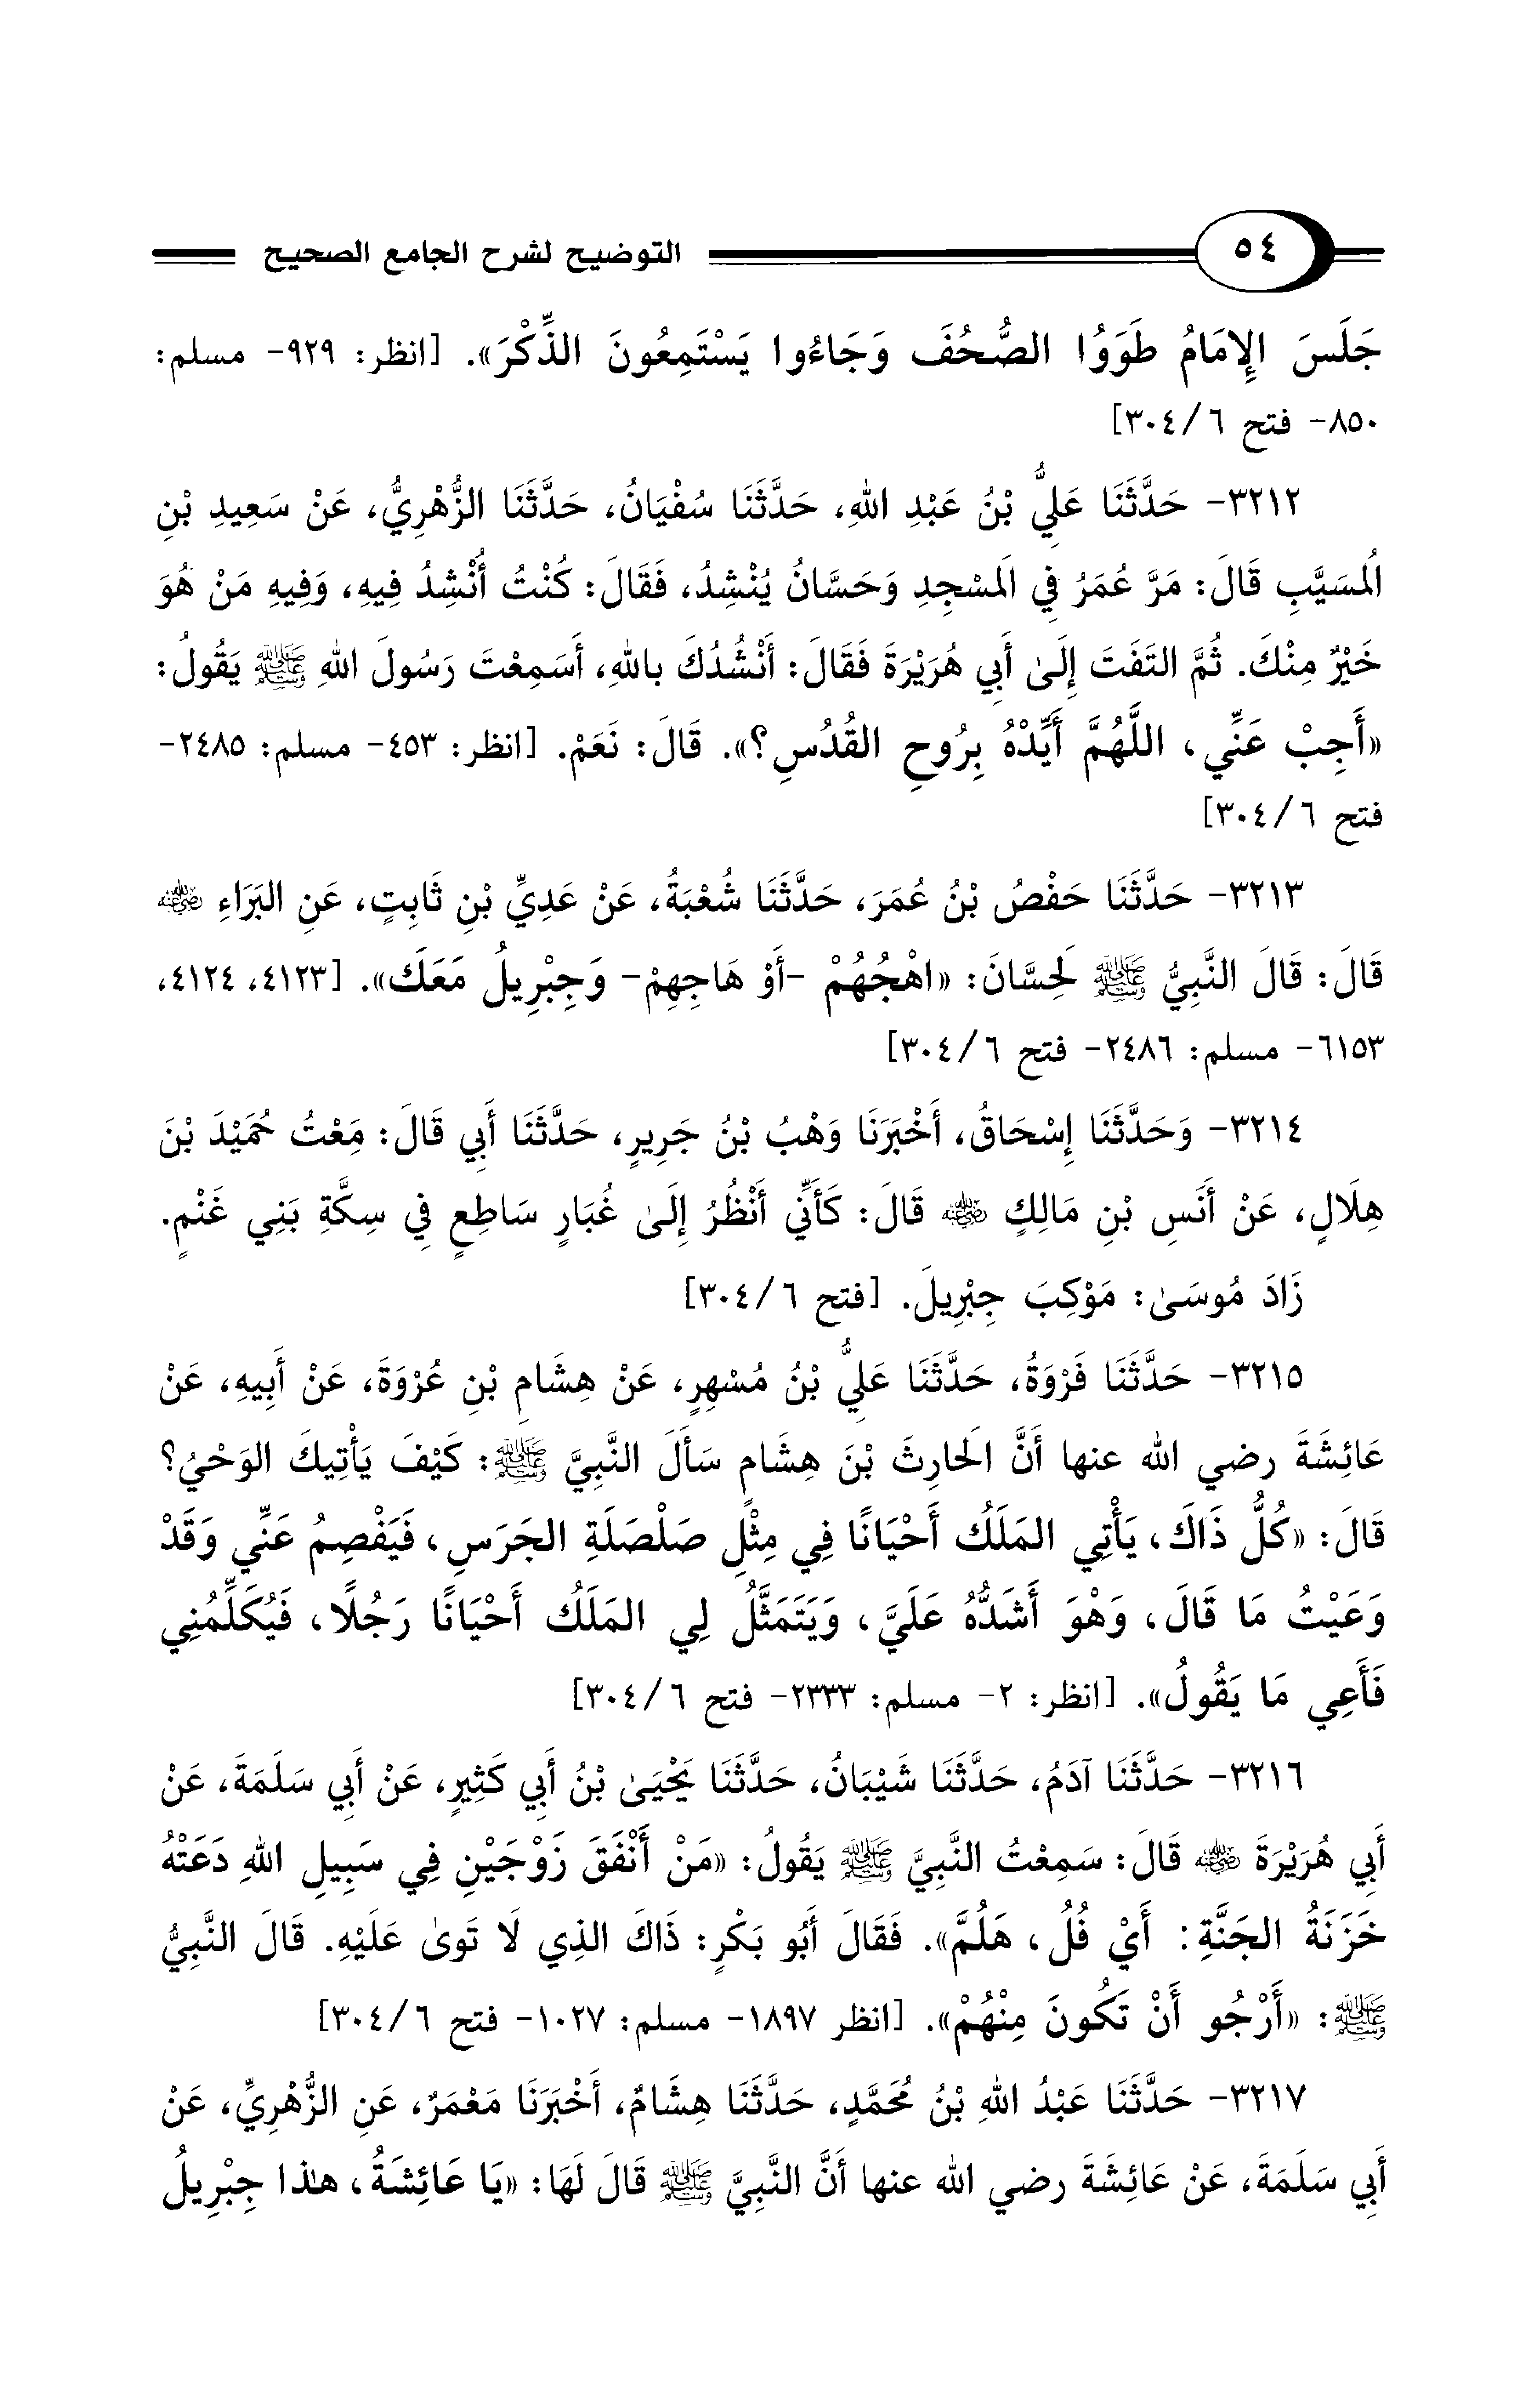 ٥٤ التوضيح لشرح الجامع الصحيح
جَلَسَ الإِمَامُ طَوَوُا الصُّحُفَ وَجَاءُوا يَسْتَمِعُونَ الذِّكْرَ». [انظر: ٩٢٩- مسلم:
٨٥٠- فتح ٦/ ٣٠٤]
٣٢١٢- حَدَّثَنَا عَلِيُّ بْنُ عَبْدِ اللهِ، حَدَّثَنَا سُفْيَانُ، حَدَّثَنَا الزُّهْرِيُّ، عَنْ سَعِيدِ بْنِ
الُمسَيَّبِ قَالَ: مَرَّ عُمَرُ فِي الَمسْجِدِ وَحَسَّانُ يُنْشِدُ، فَقَالَ: كُنْتُ أُنْشِدُ فِيهِ، وَفِيهِ مَنْ هُوَ
خَيْرٌ مِنْكَ. ثُمَّ التَفَتَ إِلَىٰ أَبِي هُرَيْرَةَ فَقَالَ: أَنْشُدُكَ باللهِ، أَسَمِعْتَ رَسُولَ اللهِ ﷺ يَقُولُ:
«أَجِبْ عَنِّي، اللَّهُمَّ أَيِّدْهُ بِرُوحِ القُدُسِ؟». قَالَ: نَعَمْ. [انظر: ٤٥٣- مسلم: ٢٤٨٥-
فتح ٦/ ٣٠٤]
٣٢١٣- حَدَّثَنَا حَفْصُ بْنُ عُمَرَ، حَدَّثَنَا شُعْبَةُ، عَنْ عَدِيِّ بْنِ ثَابِتٍ، عَنِ البَرَاءِ رضي الله عنه
قَالَ: قَالَ النَّبِيُّ ﷺ لَحِسَّانَ: «اهْجُهُمْ -أَوْ هَاجِهِمْ- وَجِبْرِيلُ مَعَكَ». [٤١٢٣، ٤١٢٤،
٦١٥٣- مسلم: ٢٤٨٦- فتح ٦/ ٣٠٤]
٣٢١٤- وَحَدَّثَنَا إِسْحَاقُ، أَخْبَرَنَا وَهْبُ بْنُ جَرِيرٍ، حَدَّثَنَا أَبِي قَالَ: مَعْتُ حُمَيْدَ بْنَ
هِلَالٍ، عَنْ أَنَسِ بْنِ مَالِكٍ رضي الله عنه قَالَ: كَأَنِّي أَنْظُرُ إِلَىٰ غُبَارٍ سَاطِعٍ فِي سِكَّةِ بَنِي غَنْمٍ.
زَادَ مُوسَىٰ: مَوْكِبَ جِبْرِيلَ. [فتح ٦/ ٣٠٤]
٣٢١٥- حَدَّثَنَا فَرْوَةُ، حَدَّثَنَا عَلِيُّ بْنُ مُسْهِرٍ، عَنْ هِشَامِ بْنِ عُرْوَةَ، عَنْ أَبِيهِ، عَنْ
عَائِشَةَ رضي الله عنها أَنَّ الَحارِثَ بْنَ هِشَامٍ سَأَلَ النَّبِيَّ ﷺ: كَيْفَ يَأْتِيكَ الوَحْيُ؟
قَالَ: «كُلُّ ذَاكَ، يَأْتِي المَلَكُ أَحْيَانًا فِي مِثْلِ صَلْصَلَةِ الجَرَسِ، فَيَفْصِمُ عَنِّي وَقَدْ
وَعَيْتُ مَا قَالَ، وَهْوَ أَشَدُّهُ عَلَيَّ، وَيَتَمَثَّلُ لِي المَلَكُ أَحْيَانًا رَجُلًا، فَيُكَلِّمُنِي
فَأَعِي مَا يَقُولُ». [انظر: ٢- مسلم: ٢٣٣٣- فتح ٦/ ٣٠٤]
٣٢١٦- حَدَّثَنَا آدَمُ، حَدَّثَنَا شَيْبَانُ، حَدَّثَنَا يَحْيَىٰ بْنُ أَبِي كَثِيرٍ، عَنْ أَبِي سَلَمَةَ، عَنْ
أَبِي هُرَيْرَةَ رضي الله عنه قَالَ: سَمِعْتُ النَّبِيَّ ﷺ يَقُولُ: «مَنْ أَنْفَقَ زَوْجَيْنِ فِي سَبِيلِ اللهِ دَعَتْهُ
خَزَنَةُ الجَنَّةِ: أَيْ فُلُ، هَلُمَّ». فَقَالَ أَبُو بَكْرٍ: ذَاكَ الذِي لَا تَوىٰ عَلَيْهِ. قَالَ النَّبِيُّ
ﷺ: «أَرْجُو أَنْ تَكُونَ مِنْهُمْ». [انظر ١٨٩٧- مسلم: ١٠٢٧- فتح ٦/ ٣٠٤]
٣٢١٧- حَدَّثَنَا عَبْدُ اللهِ بْنُ مُحَمَّدٍ، حَدَّثَنَا هِشَامٌ، أَخْبَرَنَا مَعْمَرٌ، عَنِ الزُّهْرِيِّ، عَنْ
أَبِي سَلَمَةَ، عَنْ عَائِشَةَ رضي الله عنها أَنَّ النَّبِيَّ ﷺ قَالَ لَهَا: «يَا عَائِشَةُ، هٰذا جِبْرِيلُ